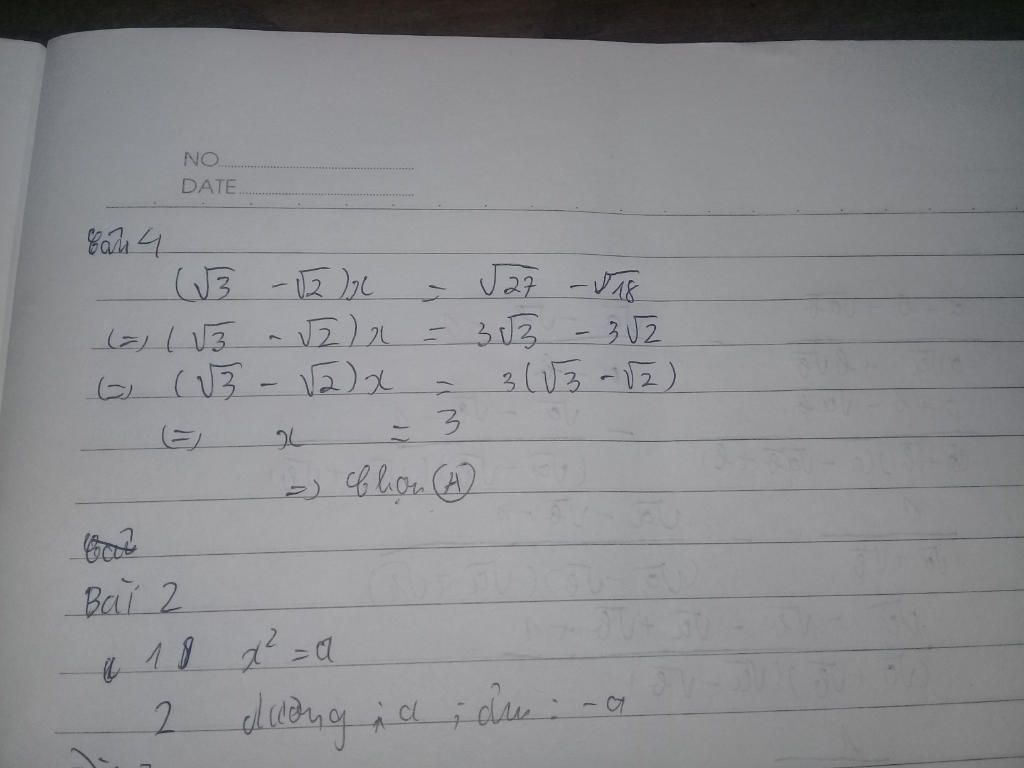 NO
DATE
Câu 4
(√3 - √2)x = √27 - √18
(=) (√3 - √2)x = 3√3 - 3√2
(=) (√3 - √2)x = 3(√3 - √2)
(=) x = 3
=> Chọn (A)
Bài 2
1 x² = a
2 dương : a ; âm : -a